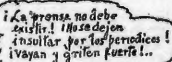 ¡La prensa no debe
existir! ¡No se dejen
insultar por los periodicos!
¡Vayan y griten fuerte!..